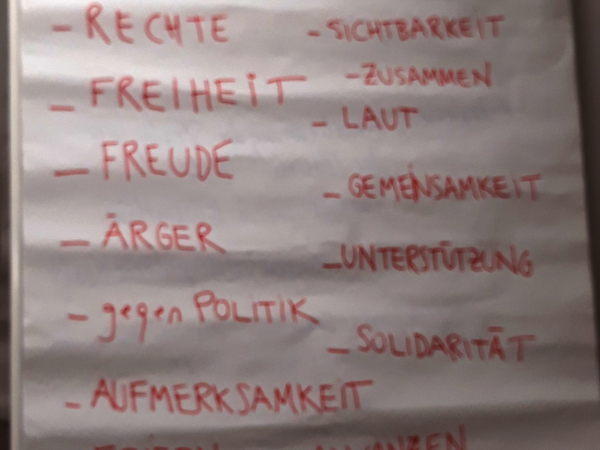 - RECHTE
- FREIHEIT
- FREUDE
- ÄRGER
- gegen POLITIK
- AUFMERKSAMKEIT
- SICHTBARKEIT
- ZUSAMMEN
- LAUT
- GEMEINSAMKEIT
- UNTERSTÜTZUNG
- SOLIDARITÄT